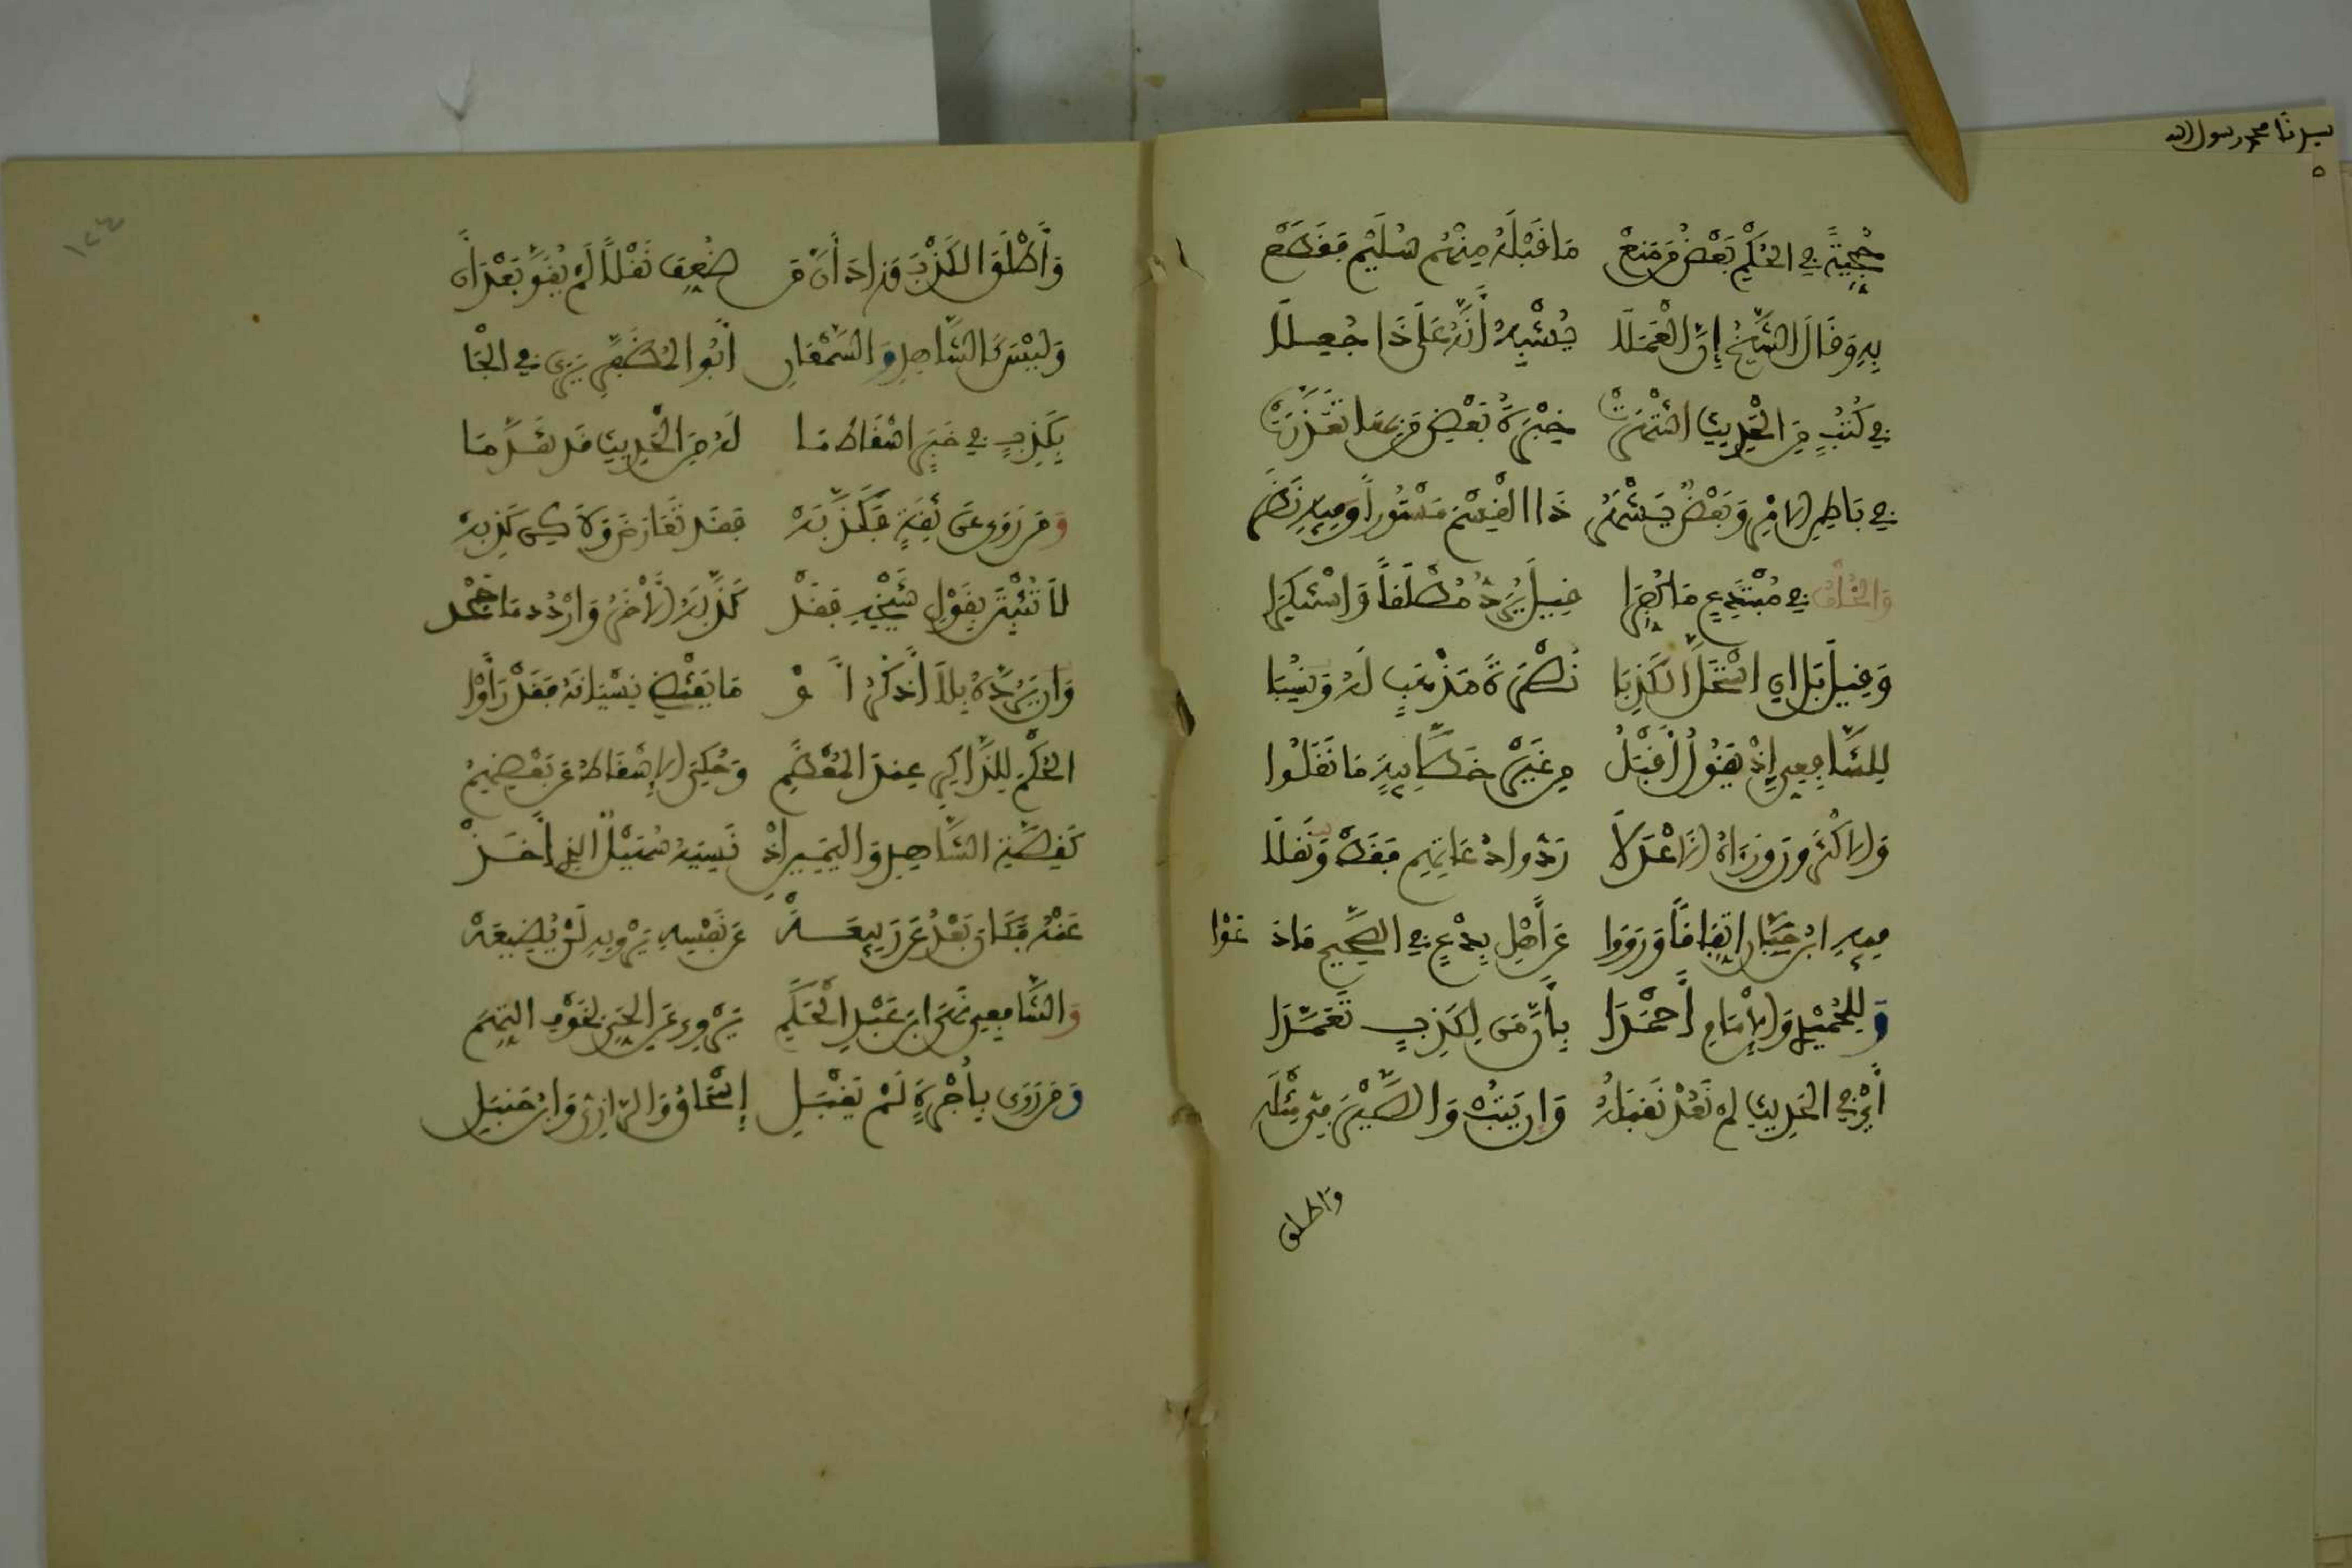 سيدنا محمد رسول الله
حجية في الحكم بعض من منع ما قبله منهم سليم فقطع
به وقال الشيخ إن العملا يشبه أنه على ذا جعلا
في كتب من الحديث اشتهرت خبرة بعض من بها تعذرت
في باطن الامر وبعض يشهر ذا القسم مستورا وفيه نظر
والخلف في مبتدع ما كفرا قيل يرد مطلقا واستنكرا
وقيل بل إذا استحل الكذبا نصرة مذهب له ونسبا
للشافعي إذ يقول أقبل من غير خطابية ما نقلوا
والاكثرون ورءاه الاعدلا ردوا دعاتهم فقط ونقلا
فيه ابن حبان اتفاقا ورووا عن أهل بدع في الصحيح ما دعوا
وللحميدي والإمام أحمدا بأن من لكذب تعمدا
أي في الحديث لم نعد نقبله وإن يتب والصيرفي مثله
وأطلق
وأطلق الكذب وزاد أن من ضعف نقلا لم يقو بعد أن
وليس كالشاهد والسمعاني أبو المظفر يرى في الجا
بكذب في خبر اسقاط ما له من الحديث قد تقدما
ومن روى عن ثقة فكذبه فقد تعارضا ولكن كذبه
لا تثبتن بقول شيخه فقد كذبه الأخر واردد ما جحد
وإن يرده بلا أذكر أو ما يقتضي نسيانه فقد رأوا
الحكم للذاكر عند المعظم وحكي الإسقاط عن بعضهم
كقصة الشاهد واليمين إذ نسيه سهيل الذي أخذ
عنه فكان بعد عن ربيعة عن نفسه يرويه لن يضيعه
والشافعي نهى ابن عبد الحكم يروي عن الحي لخوف التهم
ومن روى بأجرة لم يقبل إسحاق والرازي وابن حنبل
١٢٤